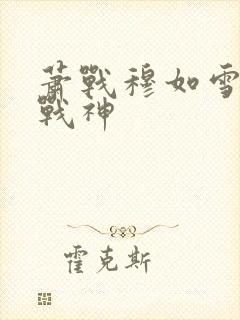 萧戰穆如雪
戰神
霍克斯